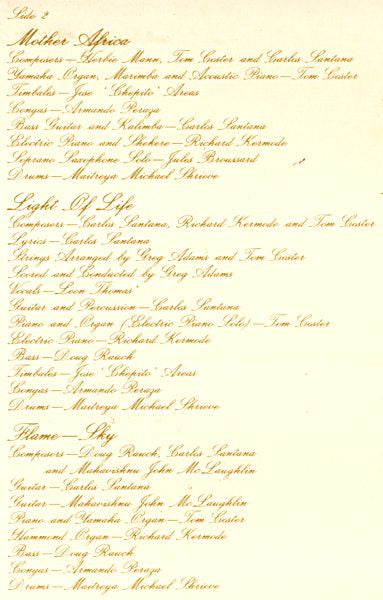 Side 2
Mother Africa
Composers—Herbie Mann, Tom Coster and Carlos Santana
Yamaha Organ, Marimba and Acoustic Piano—Tom Coster
Timbales—Jose 'Chepito' Areas
Congas—Armando Peraza
Bass Guitar and Kalimba—Carlos Santana
Electric Piano and Shekere—Richard Kermode
Soprano Saxophone Solo—Jules Broussard
Drums—Maitreya Michael Shrieve
Light Of Life
Composers—Carlos Santana, Richard Kermode and Tom Coster
Lyrics—Carlos Santana
Strings Arranged by Greg Adams and Tom Coster
Scored and Conducted by Greg Adams
Vocals—Leon Thomas
Guitar and Percussion—Carlos Santana
Piano and Organ (Electric Piano Solo)—Tom Coster
Electric Piano—Richard Kermode
Bass—Doug Rauch
Timbales—Jose 'Chepito' Areas
Congas—Armando Peraza
Drums—Maitreya Michael Shrieve
Flame—Sky
Composers—Doug Rauch, Carlos Santana
and Mahavishnu John McLaughlin
Guitar—Carlos Santana
Guitar—Mahavishnu John McLaughlin
Piano and Yamaha Organ—Tom Coster
Hammond Organ—Richard Kermode
Bass—Doug Rauch
Congas—Armando Peraza
Drums—Maitreya Michael Shrieve